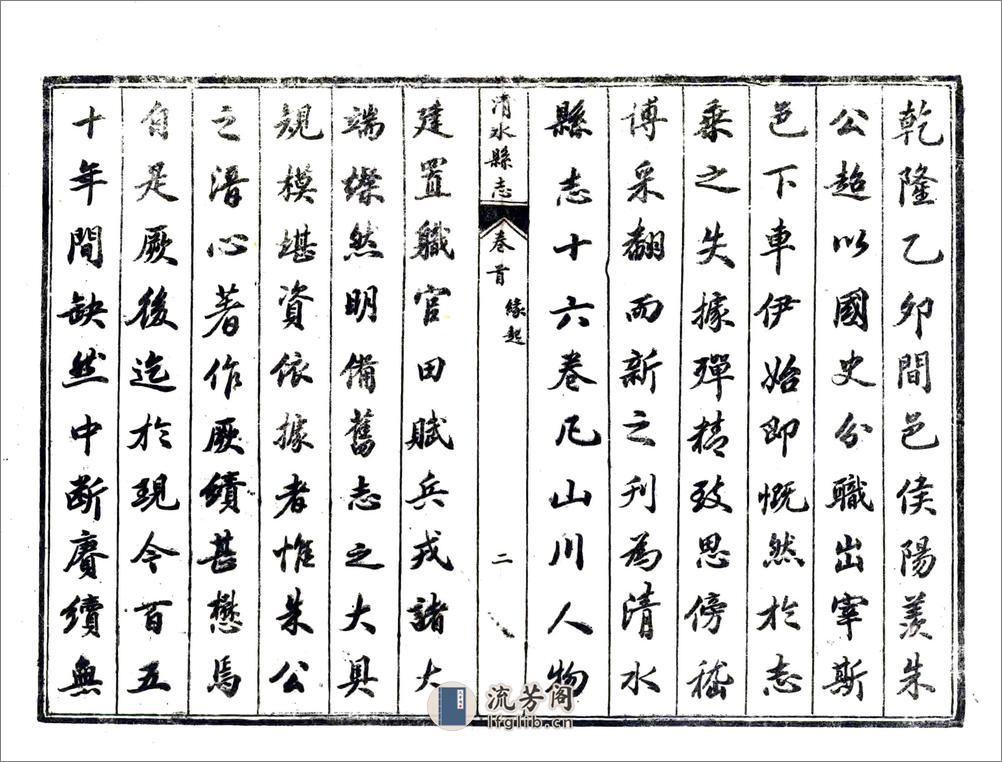 乾隆乙卯間邑侯陽羨朱
公超以國史分職出宰斯
邑下車伊始即慨然於志
乘之失據殫精致思傍嵇
博采翻而新之刊為清水
縣志十六卷凡山川人物
清水縣志 卷首 緣起 二
建置職官田賦兵戎諸大
端燦然明備舊志之大具
規模堪資依據者惟朱公
之潛心著作厥績甚懋焉
自是厥後迄於現今百五
十年間缺然中斷賡續無
流芳阁
lfglib.cn